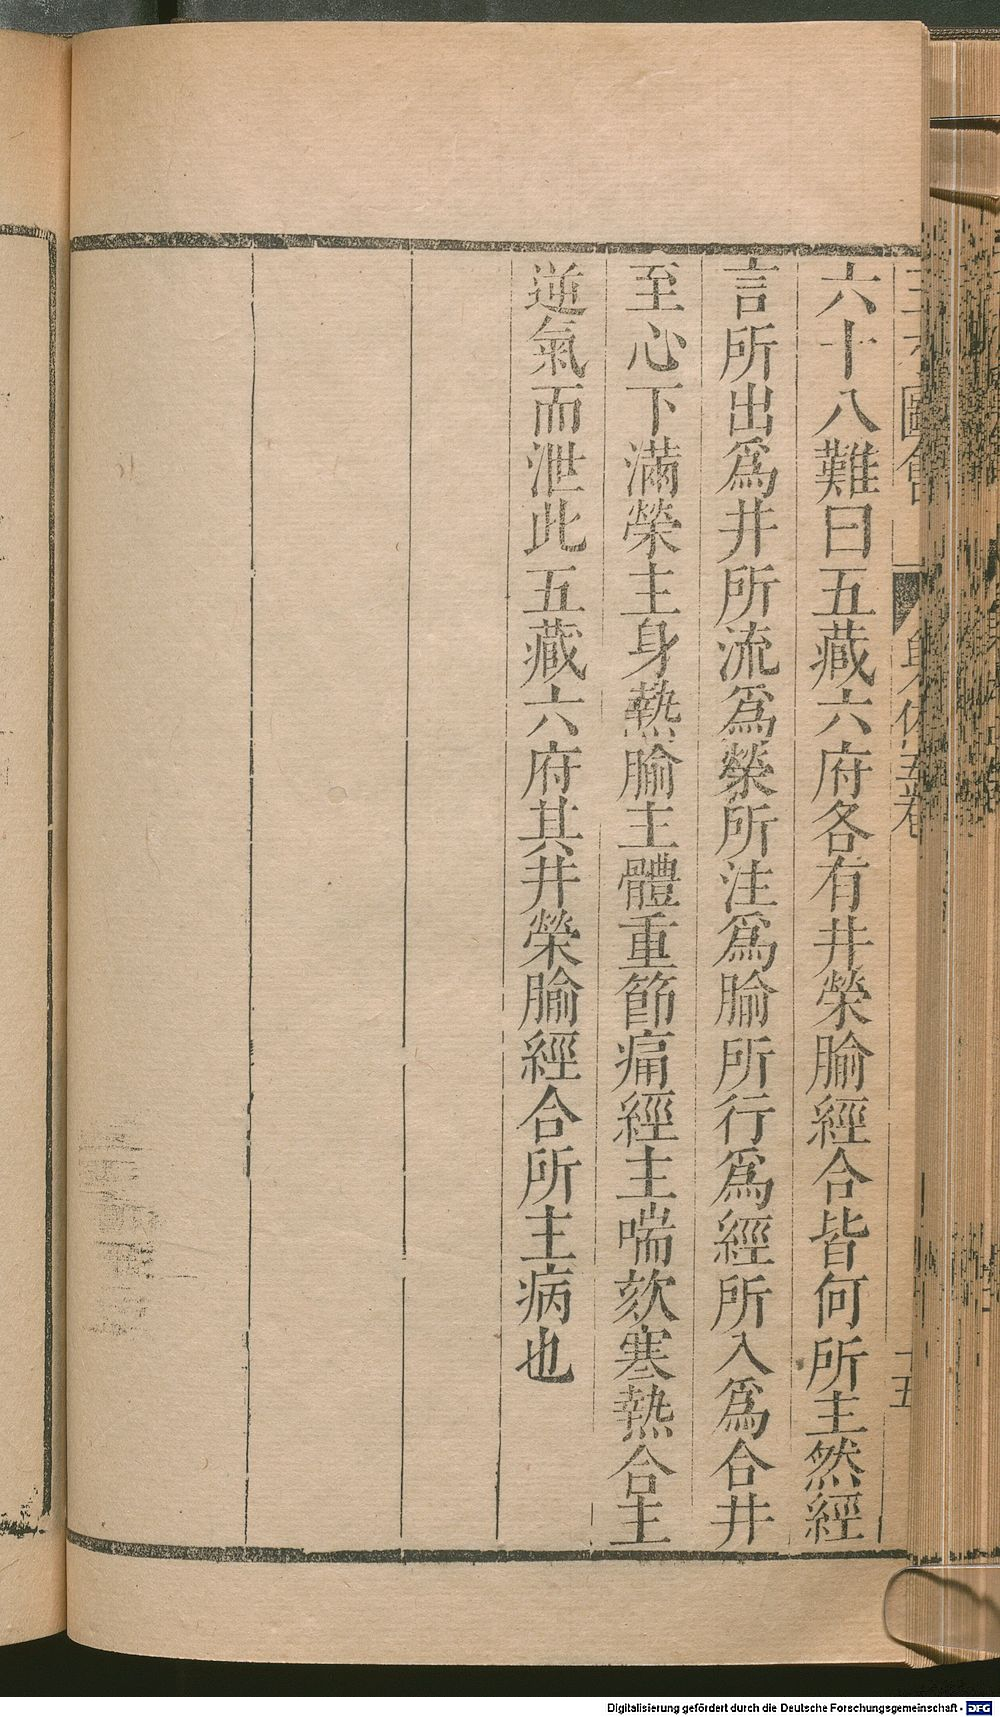 六十八難曰五藏六府各有井滎腧經合皆何所主然經
言所出爲井所流爲滎所注爲腧所行爲經所入爲合井
至心下滿滎主身熱腧主體重節痛經主喘欬寒熱合主
逆氣而泄此五藏六府其井滎腧經合所主病也
Digitalisierung gefördert durch die Deutsche Forschungsgemeinschaft - DFG